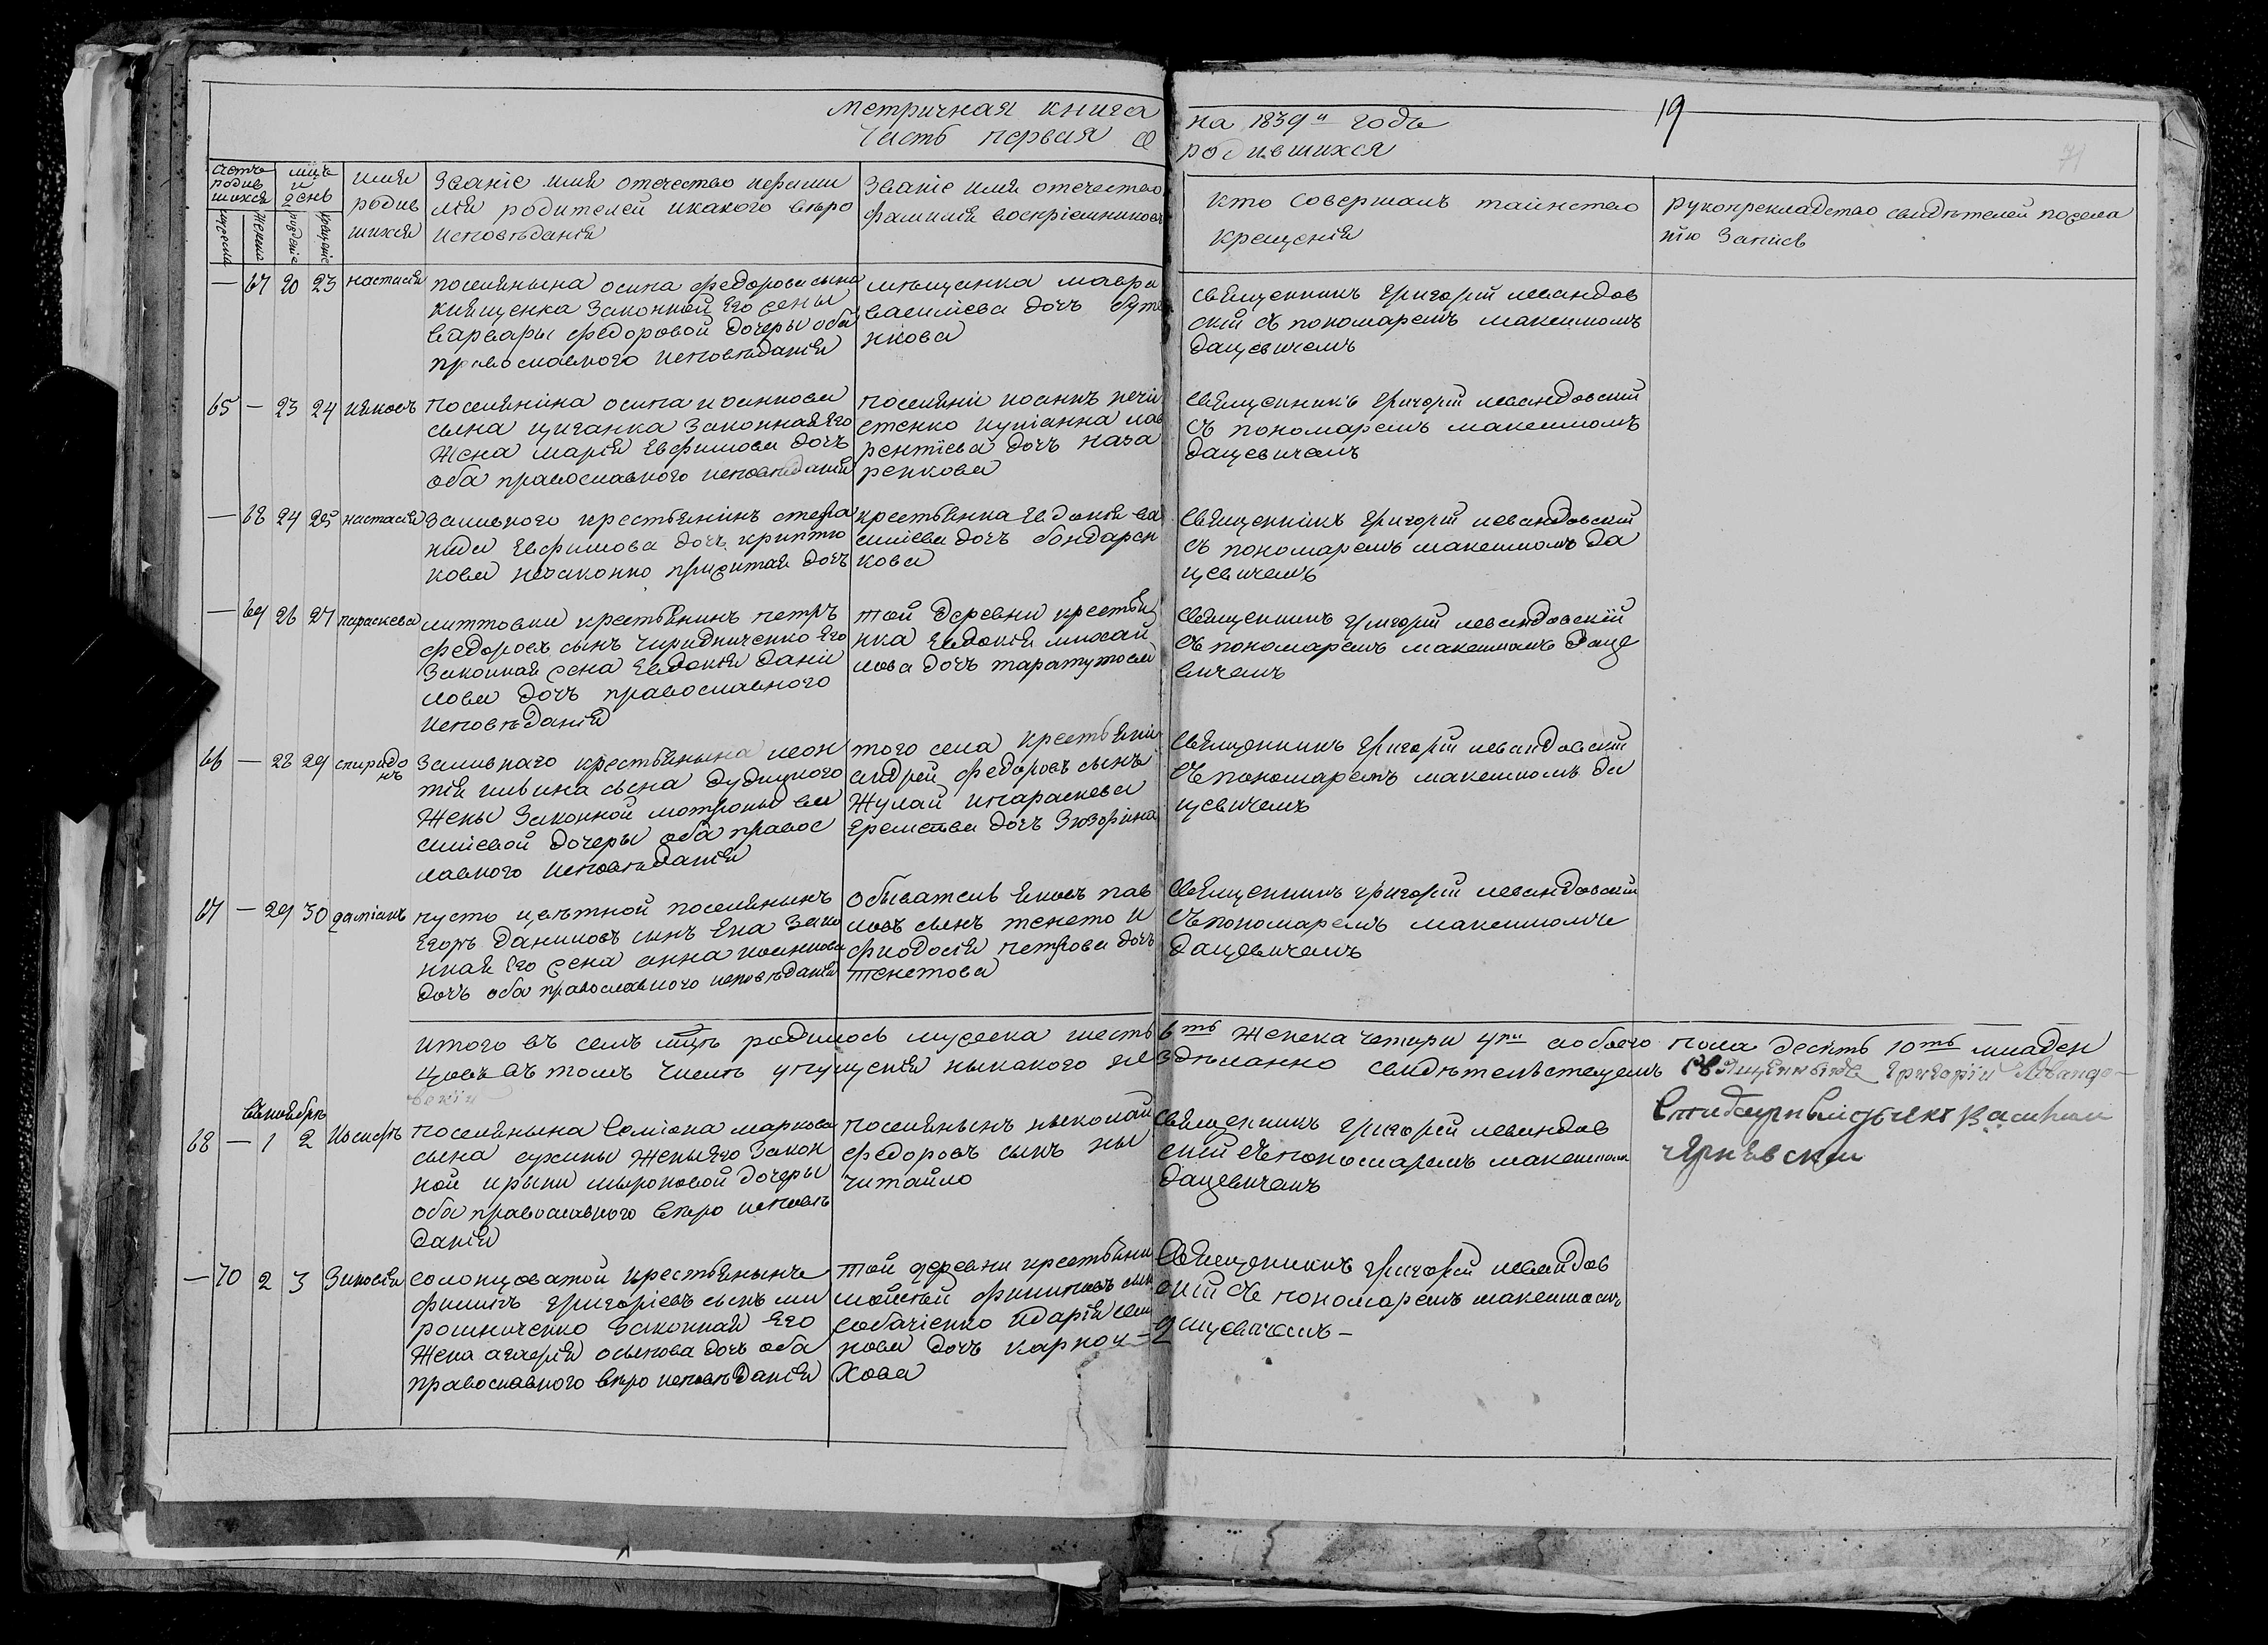 метричная книга на 1839й годъ 19
Часть первая О родившихся 71
Счетъ родив шихся
мцъ и день
имя родив шихся
Званіе имя отечество ифами
лія родителей икакого вѣро
исповѣданія
Званіе имя отечество
фамилія воспріемниковъ
кто совершалъ таинство
крещенія
рукоприкладство свидѣтелей пожела
нію записѣ
мужска женска рожденіе крещеніе
— 67 20 23 настасія
поселянына осипа федорова сына
кнященка законной Его жены
варвары федоровой дочеры оба
православного исповѣданія
мѣщанка мавра
василіева дочъ
нкова
священникъ григорій левандов
скій съ пономаремъ максимомъ
дацевичемъ
65 — 23 24 ияковъ
поселяніна осипа иоаннова
сына циганка законная Его
жена марія Евфимова дочъ
оба православного исповѣданія
поселяні иоаннъ нечи
стенко иуліанна лав
рентіева дочъ наза
ренкова
священникъ григорій левандовскій
съ пономаремъ максимомъ
дацевичемъ
— 68 24 25 настасія
заливного крестьянінъ стефа
нида Евфимова дочъ крипто
кова незаконно прижитая дочъ
крестьянка Евдокія ва
силіева дочъ бондарен
кова
священникъ григорій левандовскій
съ пономаремъ максимомъ да
цевичемъ
— 69 26 27 параскева
литтовки крестьянинъ петръ
федоровъ сынъ чиридниченко Его
законная жена Евдокія даніи
лова дочъ православного
исповѣданія
той деревни крестья
нка Евдокія михай
лова дочъ таратутова
священникъ григорій левандовскій
съ пономаремъ максимомъ даце
вичемъ
66 — 28 29 спиридо
нъ
заливнаго крестьянына леон
тія ильина сына дудицкого
жены законной мотроны ва
силіевой дочеры оба правос
лавного исповѣданія
того села крестьяни
андрей федоровъ сынъ
жулай ипараскева
Еремѣева дочъ Зюзорина
священникъ григорій левандовскій
съ пономаремъ максимомъ да
цевичемъ
67 — 29 30 даміанъ
пусто цвѣтной поселянынъ
Егоръ даниловъ сынъ Ена зако
нная Его жена анна иоаннова
дочъ оба православного исповѣданія
обыватель яковъ пав
ловъ сынъ тенето и
фиодосія петрова дочъ
тенетова
священникъ григорій левандовскій
съ пономаремъ максимомъ
дацевичемъ
итого въ семъ мцѣ родилось мужеска шесть 6ть женска четыри 4ри а обоего пола десять 10ть младен
цовъ въ томъ числѣ упущенія ныкакого не здѣланно свидѣтельствуемъ Священникъ Григорій Леванdo-
вскій
въноябрѣ
68 — 1 2 Иосифъ
поселянына Семіона маркова
сына сухины жены Его закон
ной ирыни мыроновой дочеры
оба православного вѣро исповѣ
данія
поселянынъ ныколай
федоровъ сынъ ны
читайло
священникъ григорій левандов
скій съ пономаремъ максимом
дацевичемъ
дьячекъ Василій
— 70 2 3 Зиновія
солонцоватой крестьянынъ
филипъ григоріевъ сынъ ми
рошниченко законная Его
жена агафія осыпова дочъ оба
православного вѣро исповѣданія
той деревни крестьяни
мойсей филиповъ сын
собаченко идарія сем
нова дочъ карпон-
хова
Священникъ григорій левандов
скій съ пономаремъ максимомъ
дацевичемъ-